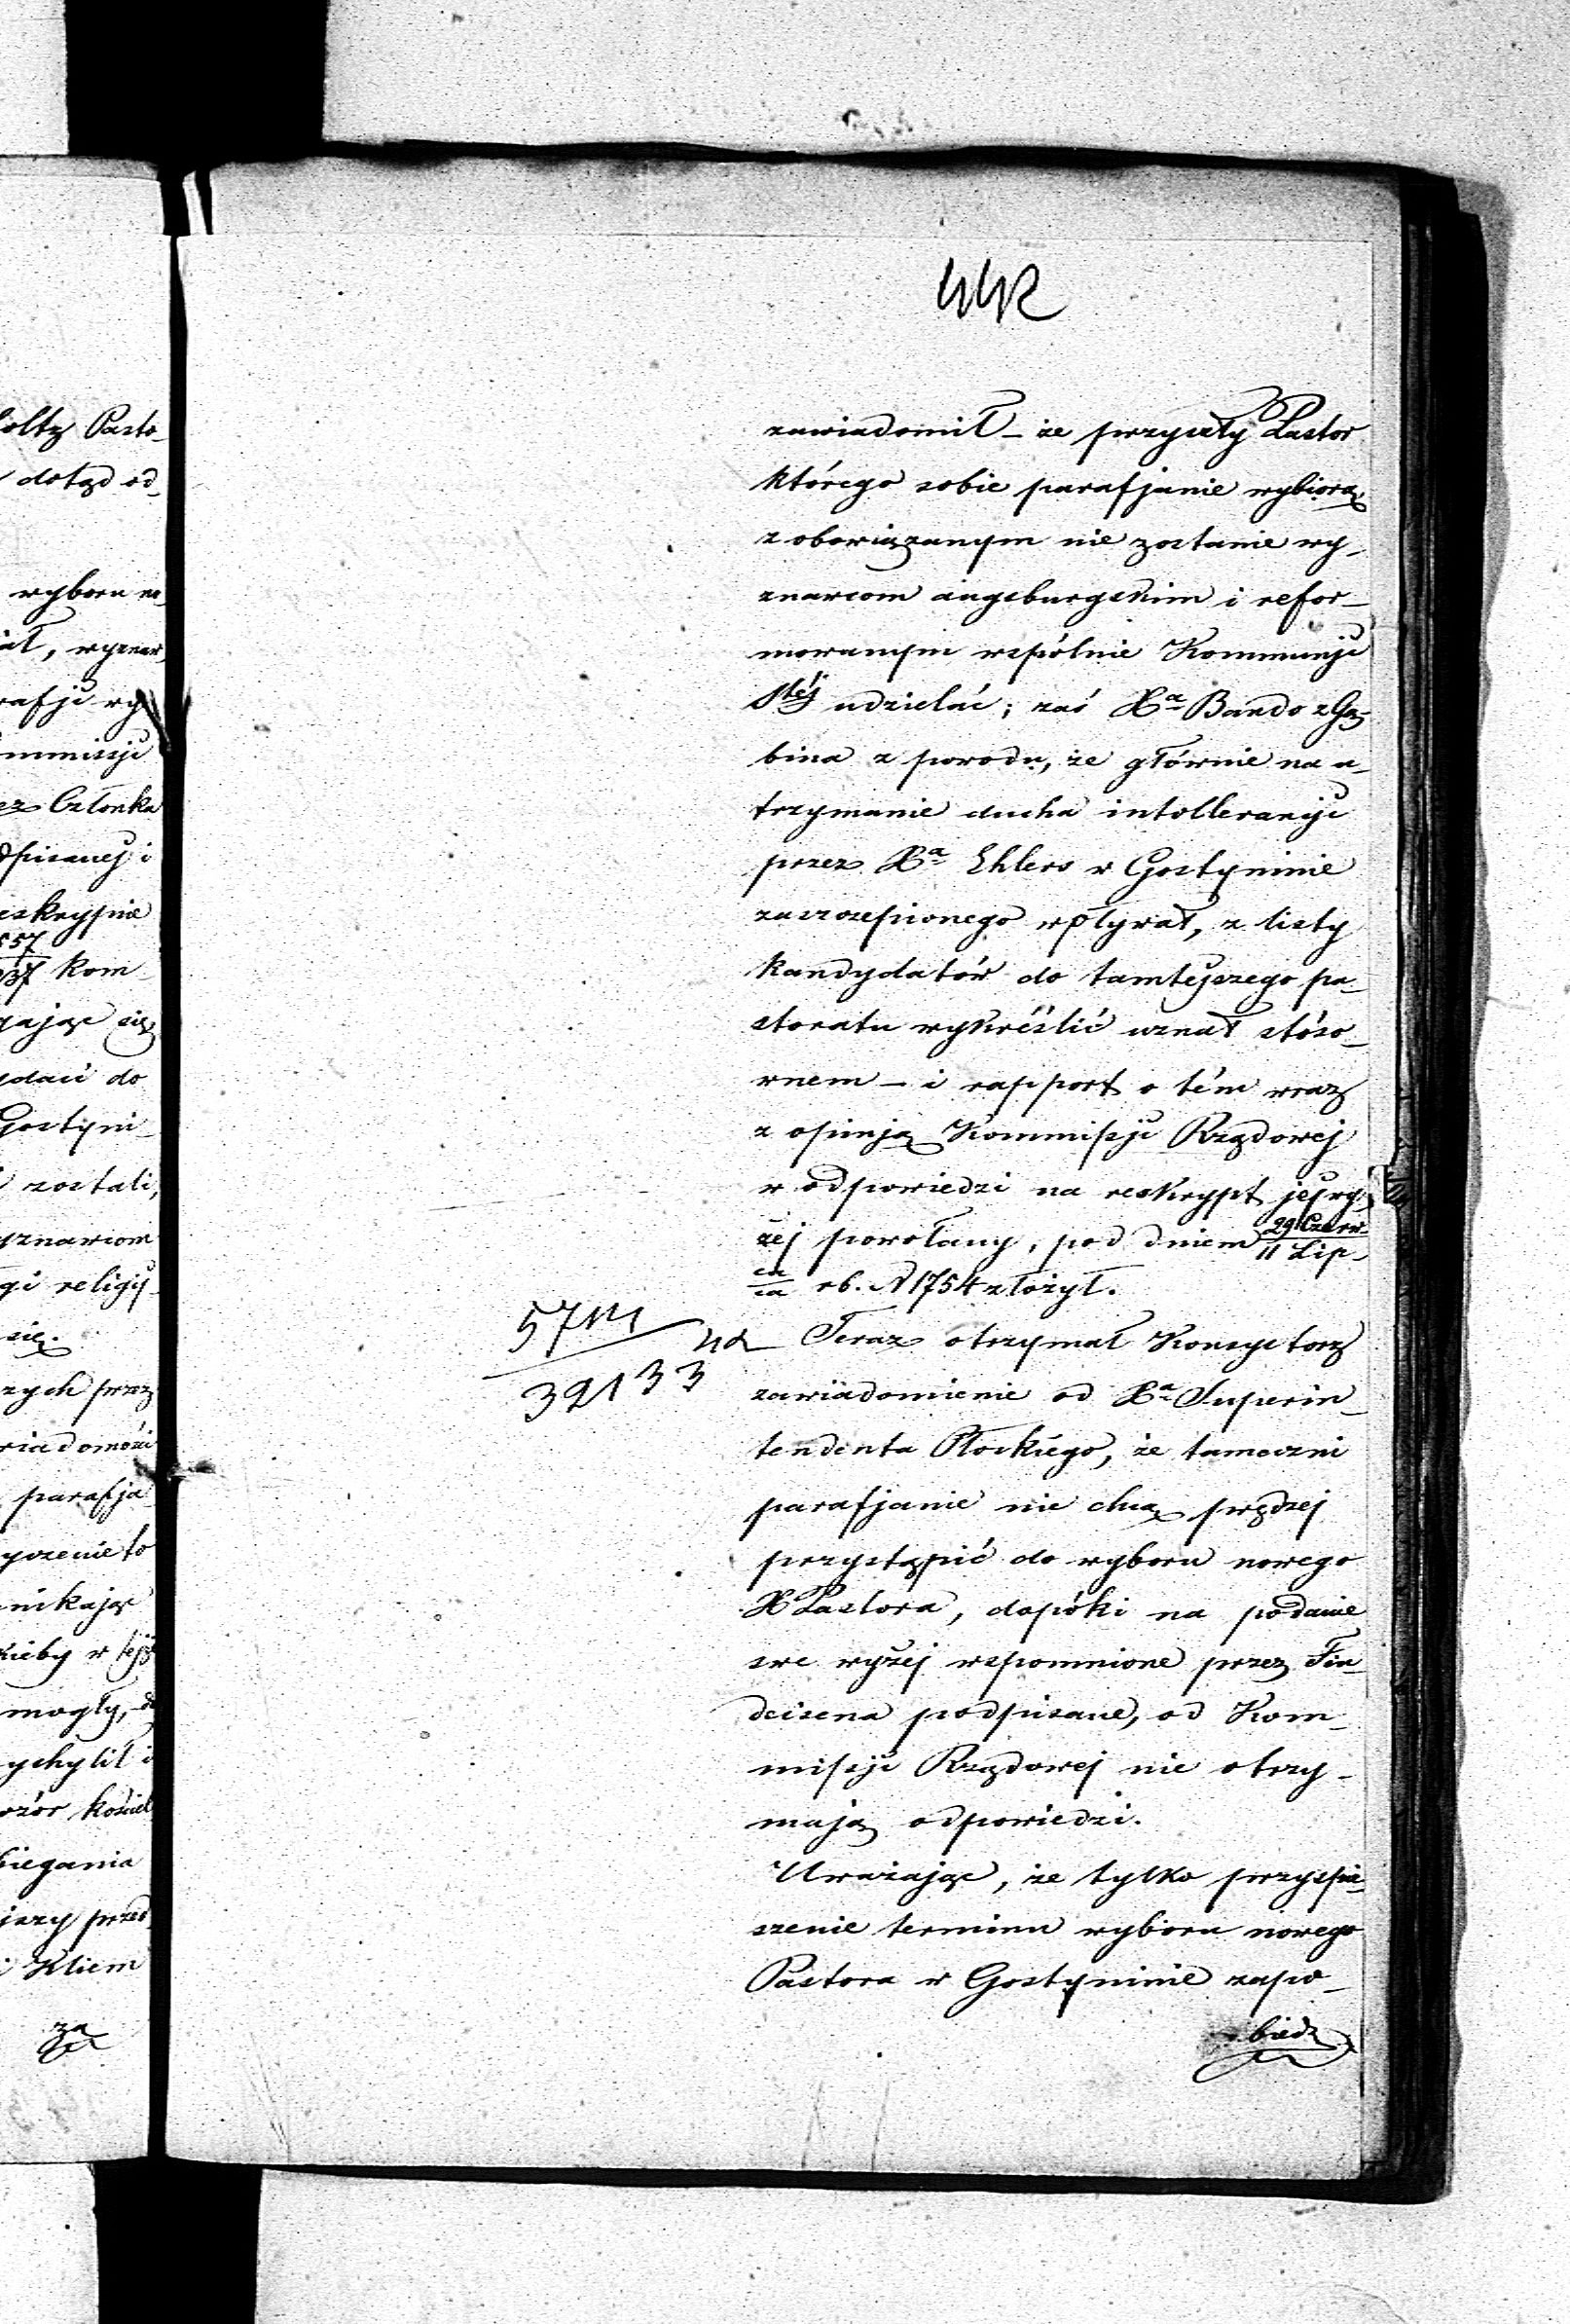 442
zawiadomił – że przyszły Pastor
którego sobie parafjanie wybiorą,
zobowiązanym nie zostanie wy-
znawcom augsburgskim i refor-
mowanym wspólnie Kommunji
Stéj udzielać; zaś Xa Bando z Gą-
bina z powodu, że głównie na u-
trzymanie ducha intollerancji
przez Xa Ehlers w Gostyninie
zaszczepionego wpływał, z listy
kandydatów do tamtejszego pa-
storatu wykréślić uznał stóso-
wnem – i rapport o tém wraz
z opinją Kommissji Rządowej
w odpowiedzi na reskrypt jej wy-
żej powołany, pod dniem 29 Czerw-/11 Lip-
ca/ca rb. N 1754 złożył.
57 M
39133
Teraz otrzymał Konsystorz
zawiadomienie od Xa Superin-
tendenta Płockiego, że tameczni
parafjanie nie chcą prędzej
przystąpić do wyboru nowego
X Pastora, dopóki na podanie
swe wyżej wspomnione przez Fin-
deisena podpisane, od Kom-
missji Rządowej nie otrzy-
mają odpowiedzi.
Uważając, że tylko przyspie-
szenie terminu wyboru nowego
Pastora w Gostyninie zapo-
biedz
Pasto-
dotąd od-
wyboru
Członka
dpisanej i
557
937 Kom-
się
do
Gostyni-
zostali,
religij-
się.
przez
parafja
mogły,
ychylił i
biegania
przed
Kliem
za